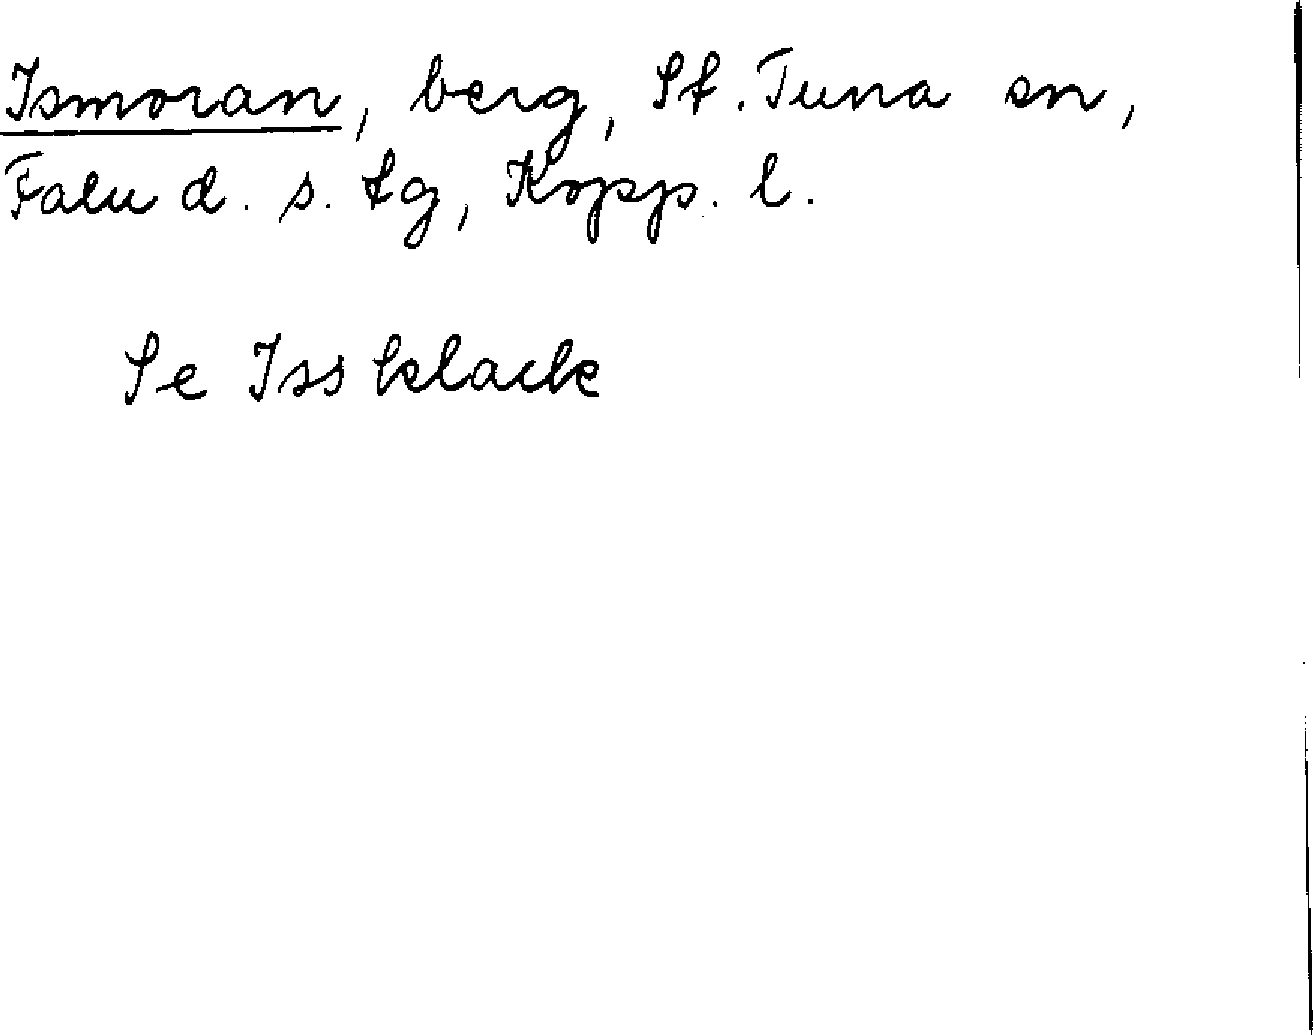 Ismoran, berg, St. Tuna sn,
Falu d. s. tg, Kopp. l.
Se Issklack